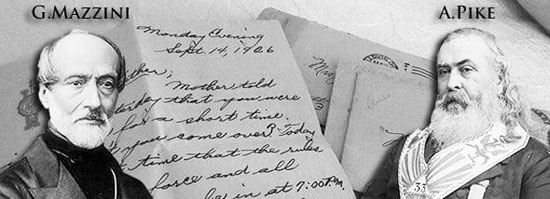 G.MAZZINI
A.PIKE
Monday Evening
Sept. 14, 1926
Mother told
that you were
for a short time.
you come over? Today
time that the rules
force and all
in at 7:00 P.M.
33